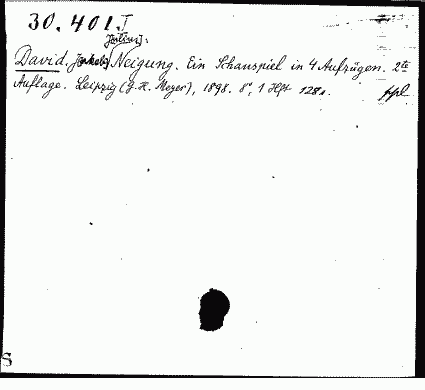 30.401.I
[Julius].
David, Neigung. Ein Schauspiel in 4 Aufzügen. 2te
Auflage. Leipzig (G. H. Meyer), 1898. 8°, 1 Hft 128 s.
S